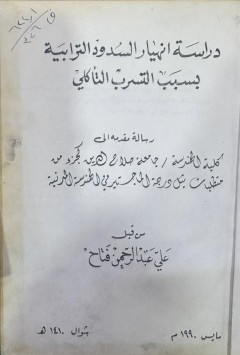 دراسة انهيار السدود الترابية
بسبب التسرب التآكلي
رسالة مقدمة الى
كلية الهندسة / جامعة صلاح الدين كجزء من
متطلبات نيل درجة الماجستير في الهندسة المدنية
من قبل
علي عبد الرحمن فتاح
مايس ١٩٩٠ م
شوال ١٤١٠ هـ